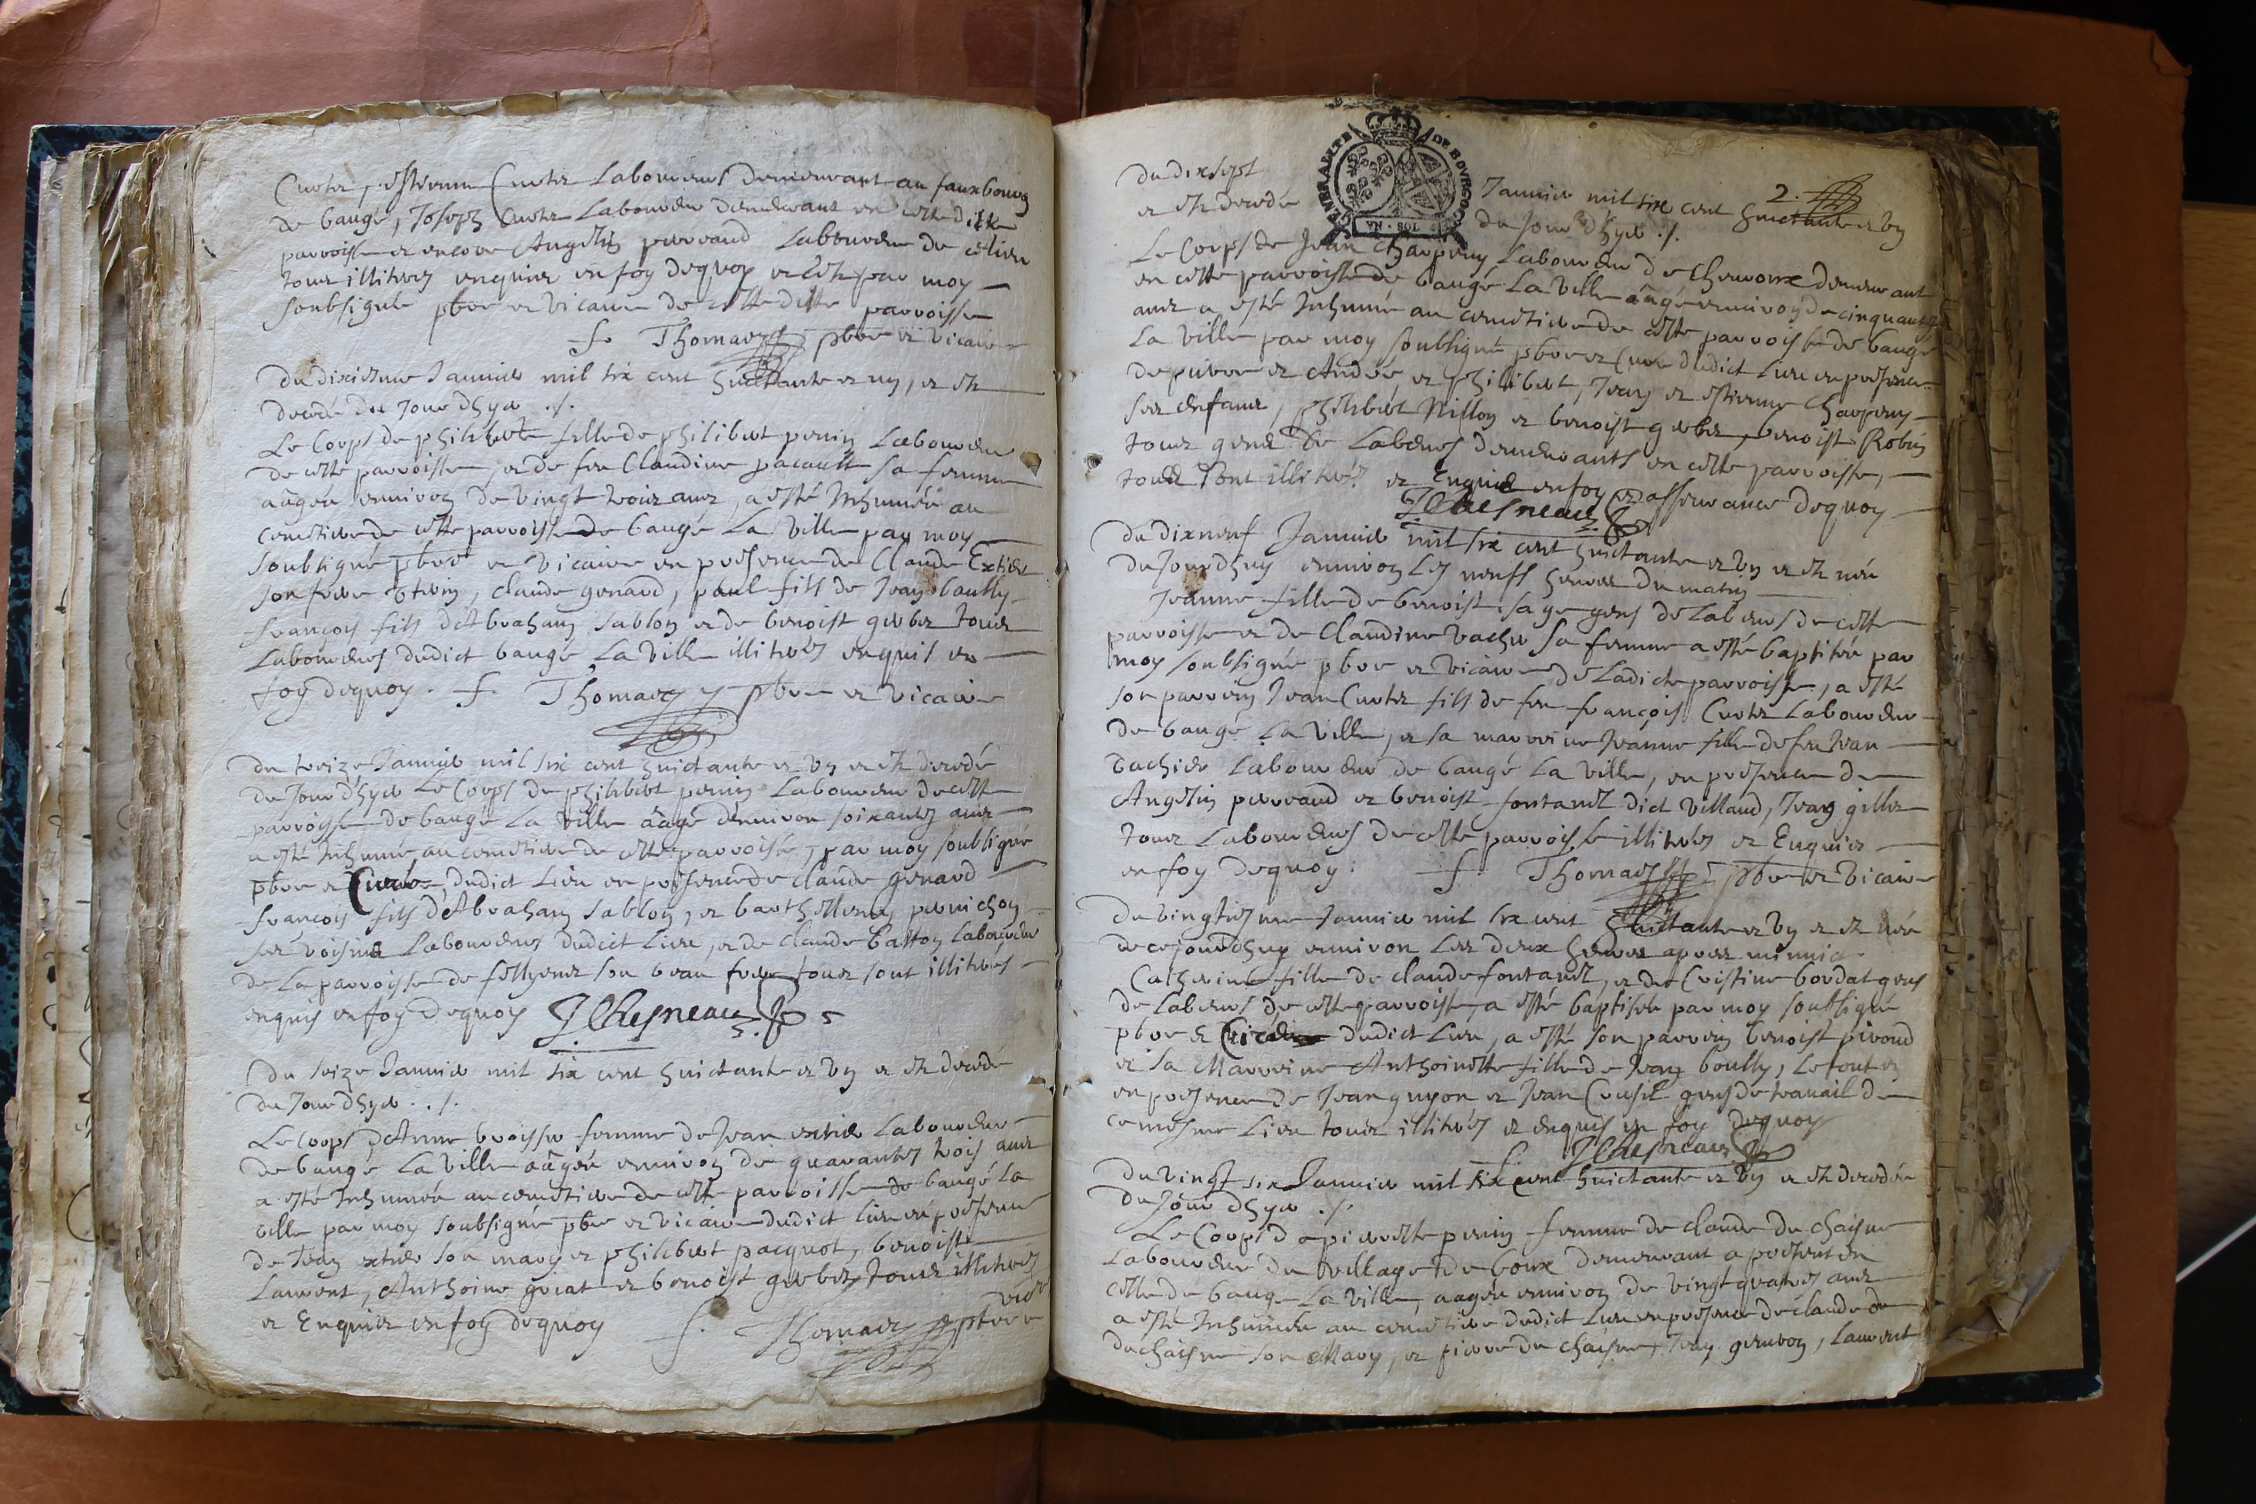 Curtz, estienne Curtz Laboureurs demeurant au fauxbourg
de baugé, Joseph Curtz Laboureur demeurant en cette ditte
parroisse et encore Angelin perraud Laboureur de ce lieu
tous illitrés enquier en foy dequoy et esté par moy
soubsigné pbre et vicaire de cette ditte parroisse
f. Thomas pbre et vicaire
du dixiesme Janvier mil six cent huictante et un, et est
decedé du Jour dhyer ./.
Le Corps de philiberte fille de philibert perrin Laboureur
de cette parroisse, et de feu Claudine pacault sa femme
aagée environ de vingt trois ans, a esté Inhumée au
cemetiere de cette parroisse de baugé La ville par moy
soubsigné pbre et vicaire en presence de Claude Extier
son frere, claude genaud, paul fils de Jean boully
françois fils d'Abraham sablon et de benoist gerbez tous
Laboureurs dudict baugé La ville illitrés enquis en
foy dequoy. f. Thomas pbre et vicaire
du treize Janvier mil six cent huictante et un et est decedé
du Jour d'hyer Le Corps de philibert perrin Laboureur de cette
parroisse de baugé La ville aagé d'environ soixantes ans
a esté Inhumé au cemetiere de cette parroisse, par moy soubsigné
pbre et Curé dudict Lieu en presence de claude genaud
françois fils d'Abraham sablon, et barthellemy pernichon
ses voisins Laboureurs dudict Lieu, et de claude baston Laboureur
de La parroisse de son beau frere tous sont illitrés
enquis en foy dequoy J Chesneau
du seize Janvier mil six cent huictante et un et est decedé
du Jour dhyer ./.
Le corps d'Anne broissu femme de Jean extier Laboureur
de baugé La ville aagée environ de quarantes trois ans
a esté Inhumée au cemetiere de cette parroisse de baugé La
ville par moy soubsigné pbre et vicaire dudict Lieu en presence
de Jean extier son mary et philibert pacquot, benoist
Laurent, Anthoine goiat et benoist gerbez tous illitrés
et Enquier en foy dequoy f. Thomas pbre vicr
GENERALITE DE BOURGOG
UN · SOL
2.
du dix sept Janvier mil six cent huictante et un
et est decedé du Jour d'hyer ./.
Le Corps de Jean Charpeny Laboureur de Cheuroux demeurant
en cette parroisse de baugé La ville aagé environ de cinquantes
ans a esté Inhumé au cemetiere de cette parroisse de baugé
La ville par moy soubsigné pbre et Curé dudict Lieu en presence
de pierre et André, et philibert, Jean et estienne Charpeny
ses enfans, philibert Nillon et benoist gerbez, benoist Robin
tous gens de Labeurs demeurants en cette parroisse,
tous sont illitrés et Enquis en foy et assurance dequoy
J Chesneau
du dixneuf Janvier mil six cent huictante et un et est née
du Jourdhuy environ Les neufs heures du matin
Jeanne fille de benoist sage gens de Labeurs de cette
parroisse et de Claudine vacher sa femme a esté baptisée par
moy soubsignée pbre et vicaire de Ladicte parroisse, a esté
son parrein Jean Curtz fils de feu françois Curtz Laboureur
de baugé La ville, et sa marreine Jeanne fille de feu Jean
vachier Laboureur de baugé La ville, en presence de
Angelin perraud et benoist fontanel dict villaud, Jean gillier
tous Laboureurs de cette parroisse illitrés et Enquier
en foy dequoy. f. Thomas pbre et vicaire
du vingtiesme Janvier mil six cent huictante et un et est née
de ce jourdhuy environ Les deux heures apres minuict
Catherine fille de claude fontanel, et de Cristine bordat gens
de Labeurs de cette parroisse, a esté baptisée par moy soubsigné
pbre et dudict Lieu, a esté son parrein benoist pirond
et sa Marreine Anthoinette fille de Jean boully, Le tout
en presence de Jean guyon et Jean Cusil gens de travail de
ce mesme Lieu tous illitrés et enquis en foy dequoy
J Chesneau
du vingt six Janvier mil six cent huictante et un et est decedée
du Jour dhyer ./.
Le Corps de pierrette perrin femme de claude du chaisne
Laboureur du village de boux demeurant a present en
celle de baugé La ville, aagée environ de vingt quatres ans
a esté Inhumée au cemetiere dudict Lieu en presence de claude du
duchaisne son Mary, et pierre du chaisne, Jean gernvoy, Laurent